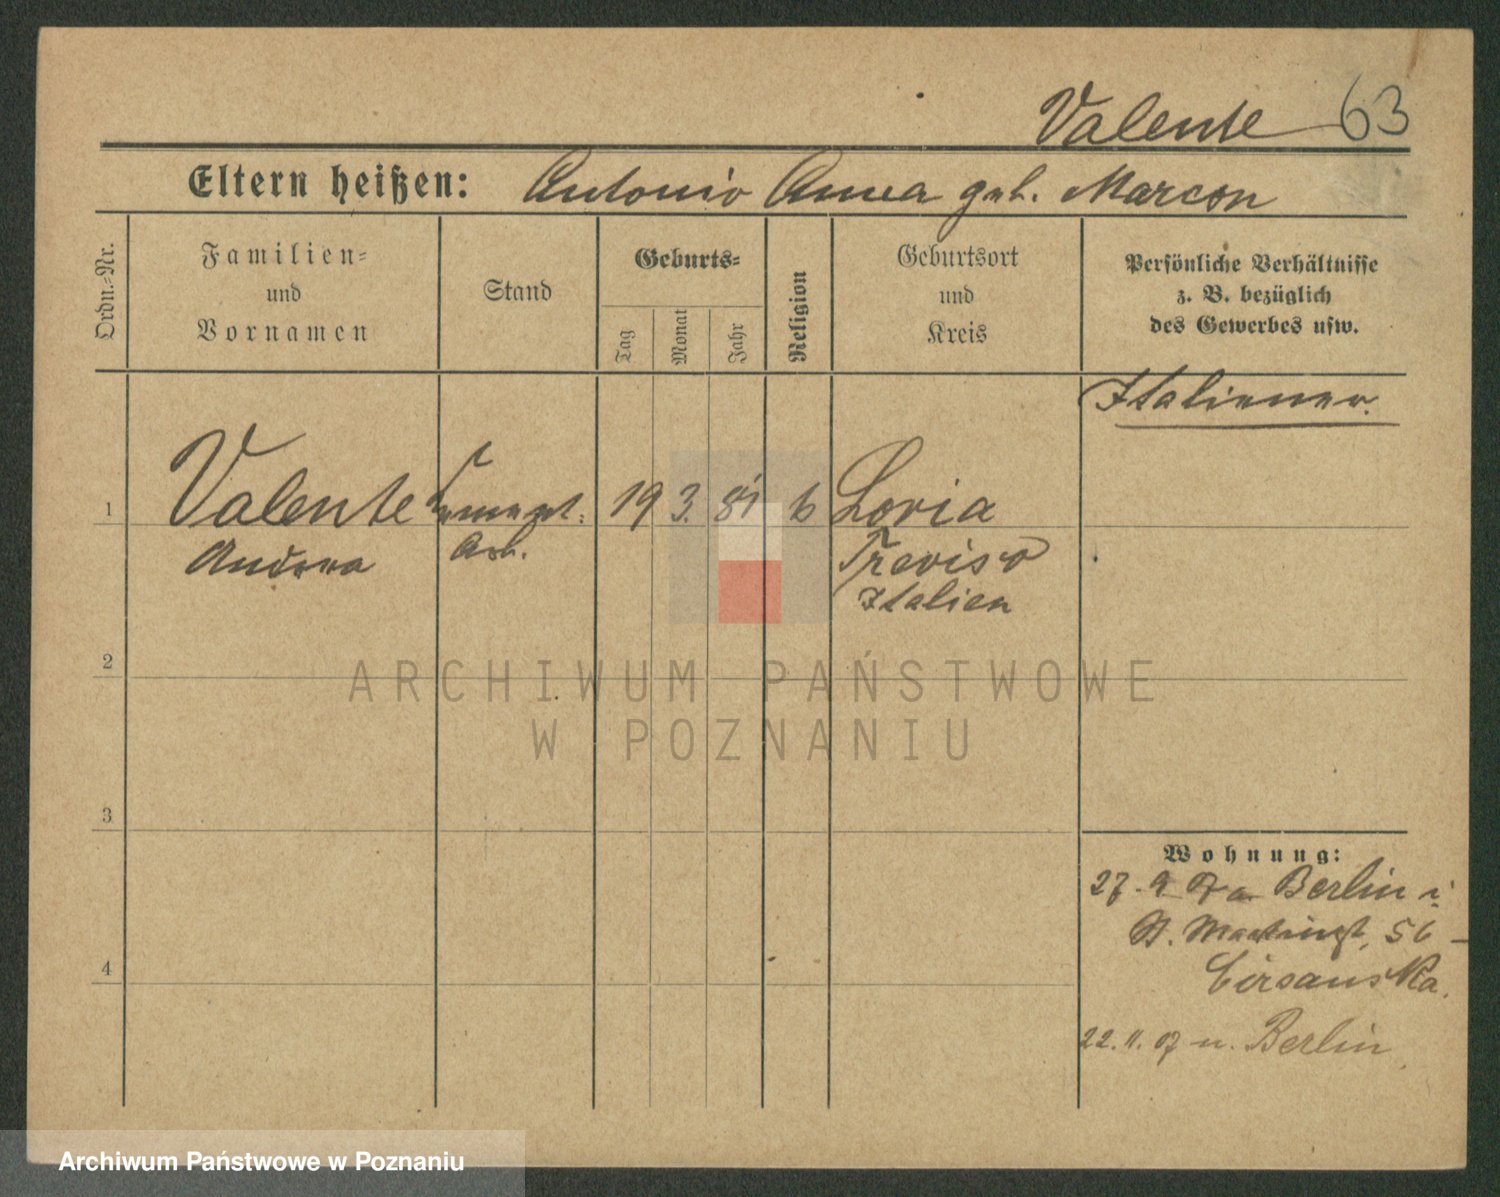 Valente 63
Eltern heißen: Antonio Anna geb. Marcon
Ordn.-Nr.
Familien-
und
Vornamen
Stand
Geburts-
Tag
Monat
Jahr
Religion
Geburtsort
und
Kreis
Persönliche Verhältnisse
z. B. bezüglich
des Gewerbes usw.
Italiener.
1 Valente Cement. 19 3. 81 Loria
Andrea Arb. Treviso
Italien
2
ARCHIWUM PAŃSTWOWE
W POZNANIU
3
Wohnung:
27. 9 07 a. Berlin
St. Martinst. 56
4
22. 11. 07 n. Berlin
Archiwum Państwowe w Poznaniu